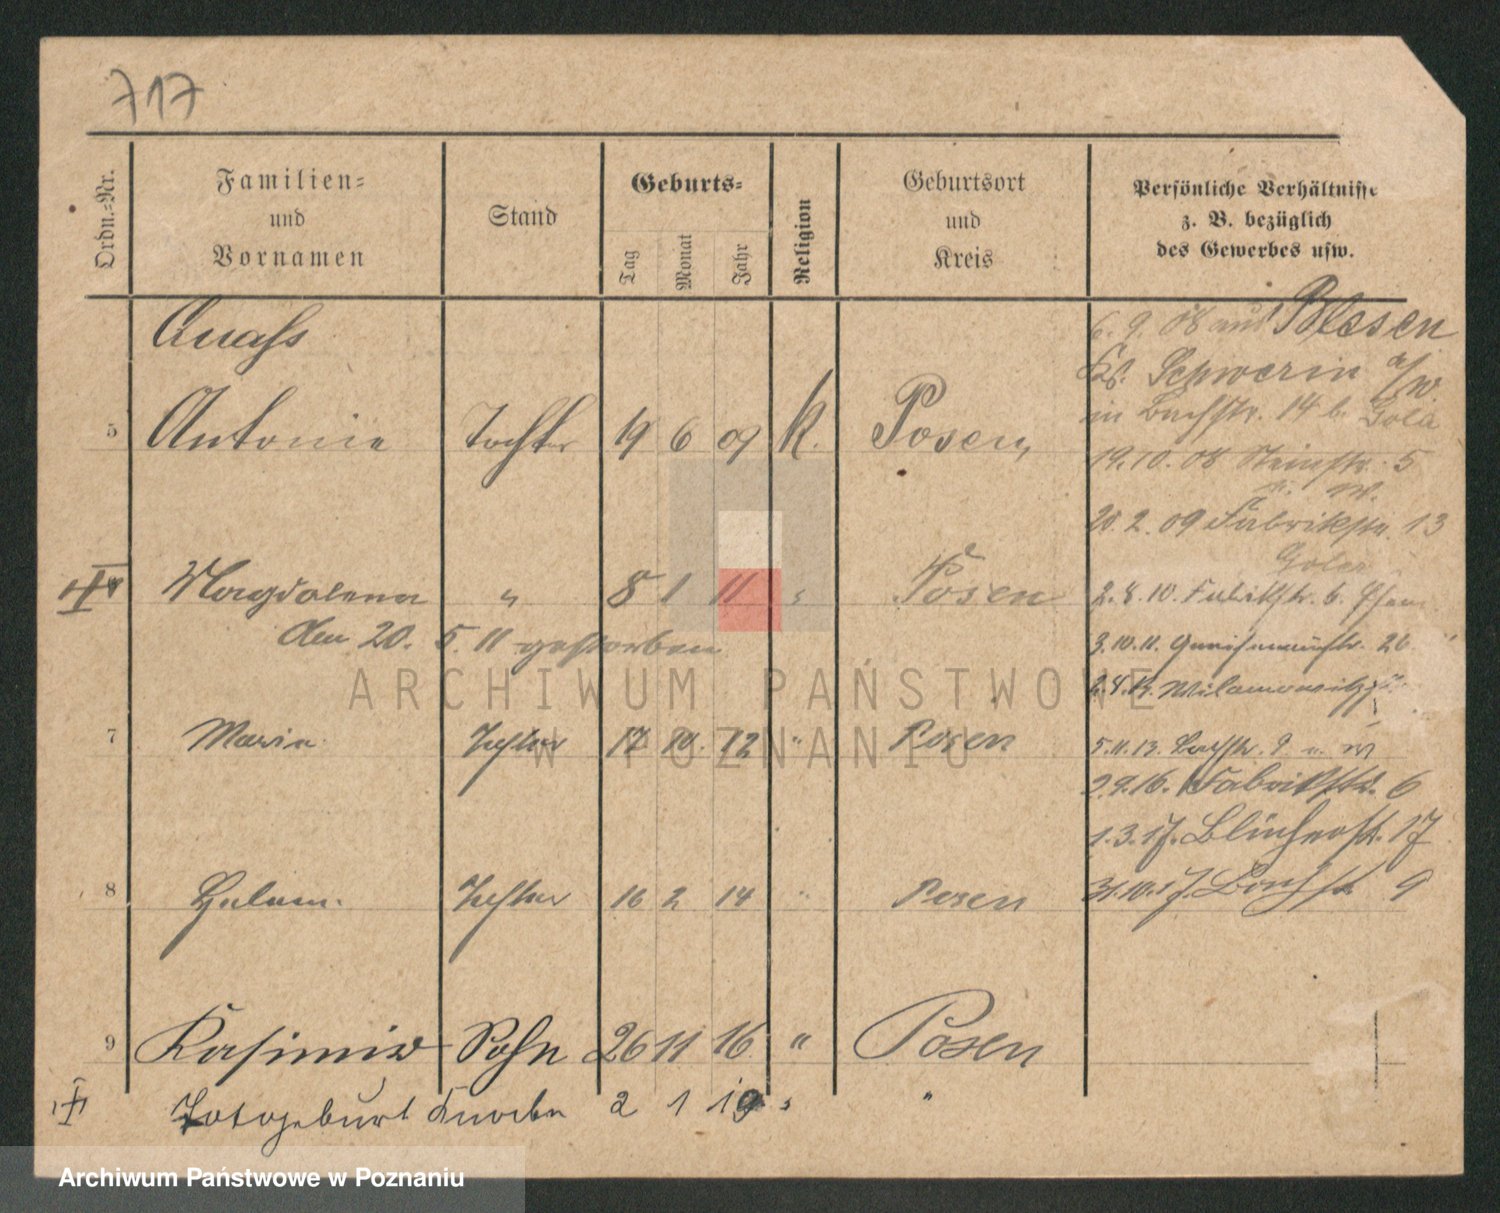 717
Ordn.-Nr.
Familien-
und
Vornamen
Stand
Geburts-
Tag
Monat
Jahr
Religion
Geburtsort
und
Kreis
Persönliche Verhältnisse
z. B. bezüglich
des Gewerbes usw.
6. 9. 08 aus Blesen
Schwerin a/W
in Bachstr. 14 b. Gola
5 Antonie Tochter 19 6 09 K. Posen,
19. 10. 08 Steinstr. 5
20. 2. 09 Fabrikstr. 13
Magdalena " 8 1 11 " Posen
2. 8. 10. Fabrikstr. 6.
den 20. 5. 11 gestorben
3. 10. 11. Gneisenaustr. 26
2. 4. 13. Wilamowitzstr.
7 Maria Tochter 17 10. 12 " Posen
5. 11. 13. Bachstr. 9 u. W
2. 9. 16. Fabrikstr. 6
1. 3. 17. Blücherstr. 17
8 Helena. Tochter 16 2 14 " Posen
31. 10. 17. Bachstr. 9
9 Kasimir Sohn 26 11 16 " Posen
Totgeburt Knabe 2 1 19 " "
ARCHIWUM PAŃSTWOWE
W POZNANIU
Archiwum Państwowe w Poznaniu